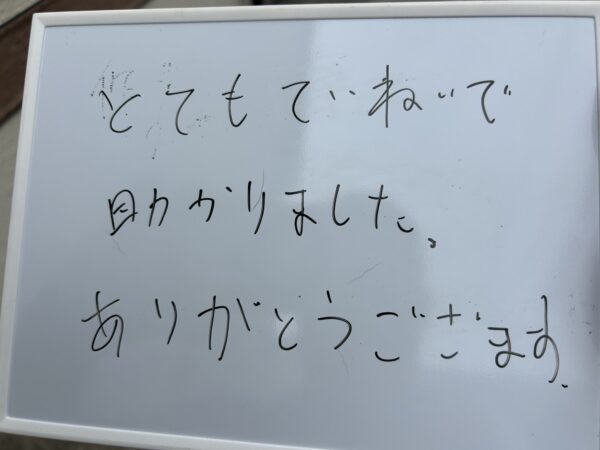 とてもていねいで
助かりました。
ありがとうございます.